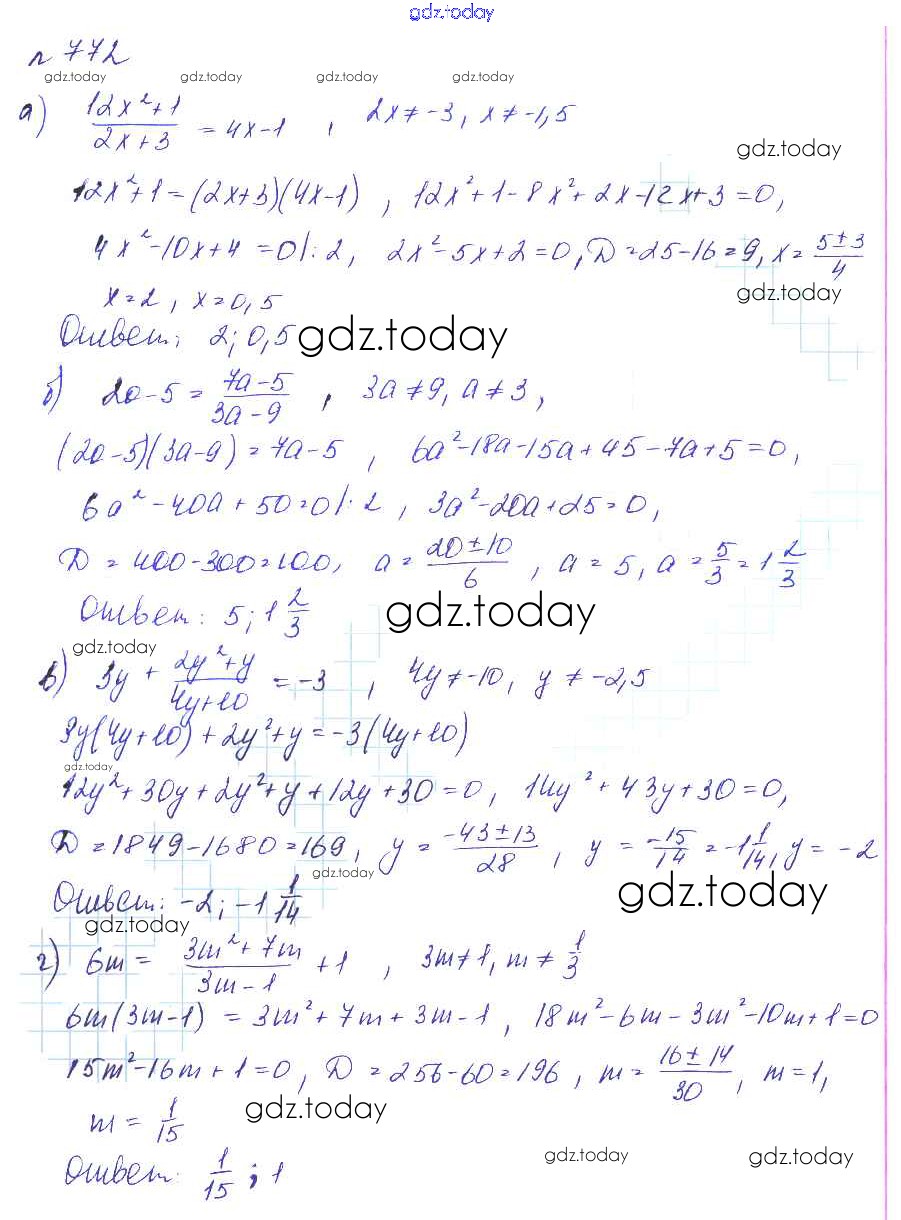 gdz.today
n 772
gdz.today gdz.today gdz.today gdz.today
а) (12x²+1)/(2x+3) = 4x-1 , 2x≠-3, x≠-1,5
gdz.today
12x²+1=(2x+3)(4x-1) , 12x²+1-8x²+2x-12x+3=0,
4x²-10x+4=0|:2, 2x²-5x+2=0, D=25-16=9, x=(5±3)/4
x=2, x=0,5
gdz.today
Ответ: 2; 0,5
gdz.today
б) 2a-5 = (7a-5)/(3a-9) , 3a≠9, a≠3,
(2a-5)(3a-9)=7a-5 , 6a²-18a-15a+45-7a+5=0,
6a²-40a+50=0|:2 , 3a²-20a+25=0,
D=400-300=100, a=(20±10)/6 , a=5, a=5/3=1 2/3
Ответ: 5; 1 2/3
gdz.today
gdz.today
в) 3y + (2y²+y)/(4y+10) = -3 , 4y≠-10, y≠-2,5
3y(4y+10)+2y²+y=-3(4y+10)
gdz.today
12y²+30y+2y²+y+12y+30=0, 14y²+43y+30=0,
D=1849-1680=169, y=(-43±13)/28 , y=-15/14=-1 1/14, y=-2
gdz.today
Ответ: -2; -1 1/14
gdz.today
gdz.today
г) 6m = (3m²+7m)/(3m-1) +1 , 3m≠1, m≠1/3
6m(3m-1) = 3m²+7m+3m-1, 18m²-6m-3m²-10m+1=0
15m²-16m+1=0, D=256-60=196, m=(16±14)/30, m=1,
m=1/15
gdz.today
Ответ: 1/15; 1
gdz.today gdz.today